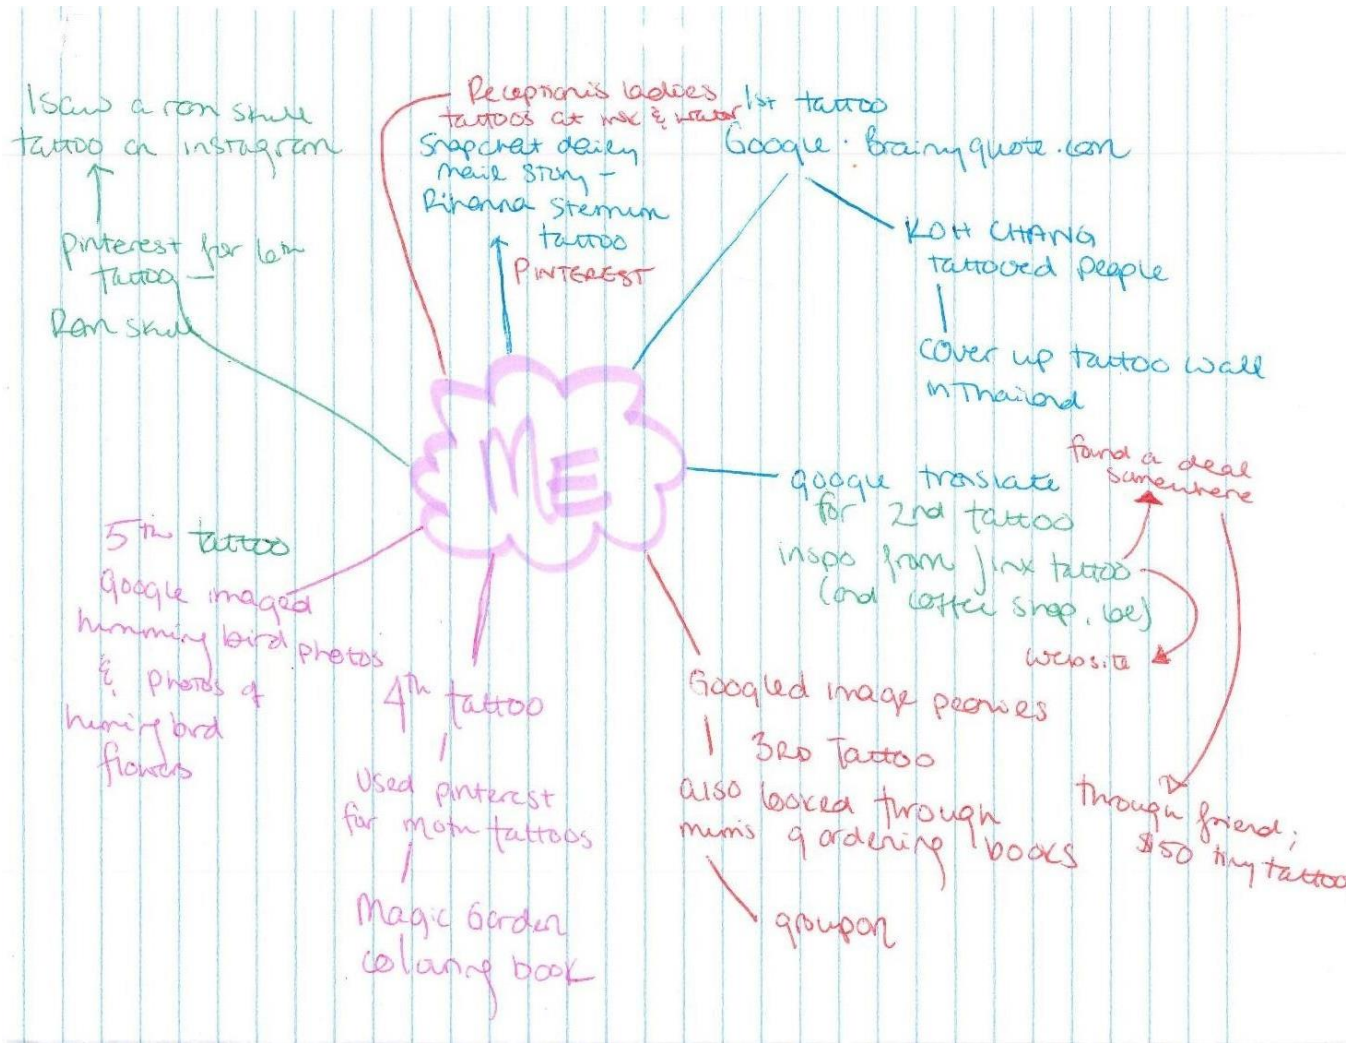 I saw a ram skull
tattoo on instagram
pinterest for 6th
tattoo –
Ram skull
Receptionis ladies
tattoos at ink & water
Snapchat daily
mail story –
Rihanna sternum
tattoo
PINTEREST
1st tattoo
Google · Brainyquote.com
KOH CHANG
tattooed people
cover up tattoo wall
in Thailand
ME
google translate
for 2nd tattoo
inspo from Jinx tattoo
(and coffee shop, lol)
found a deal
somewhere
website
through friend;
$50 tiny tattoo
Googled image peonies
3RD Tattoo
also looked through
mum's gardening books
groupon
4th tattoo
Used pinterest
for moth tattoos
Magic Garden
colouring book
5th tattoo
Google imaged
humming bird photos
& photos of
huming bird
flowers